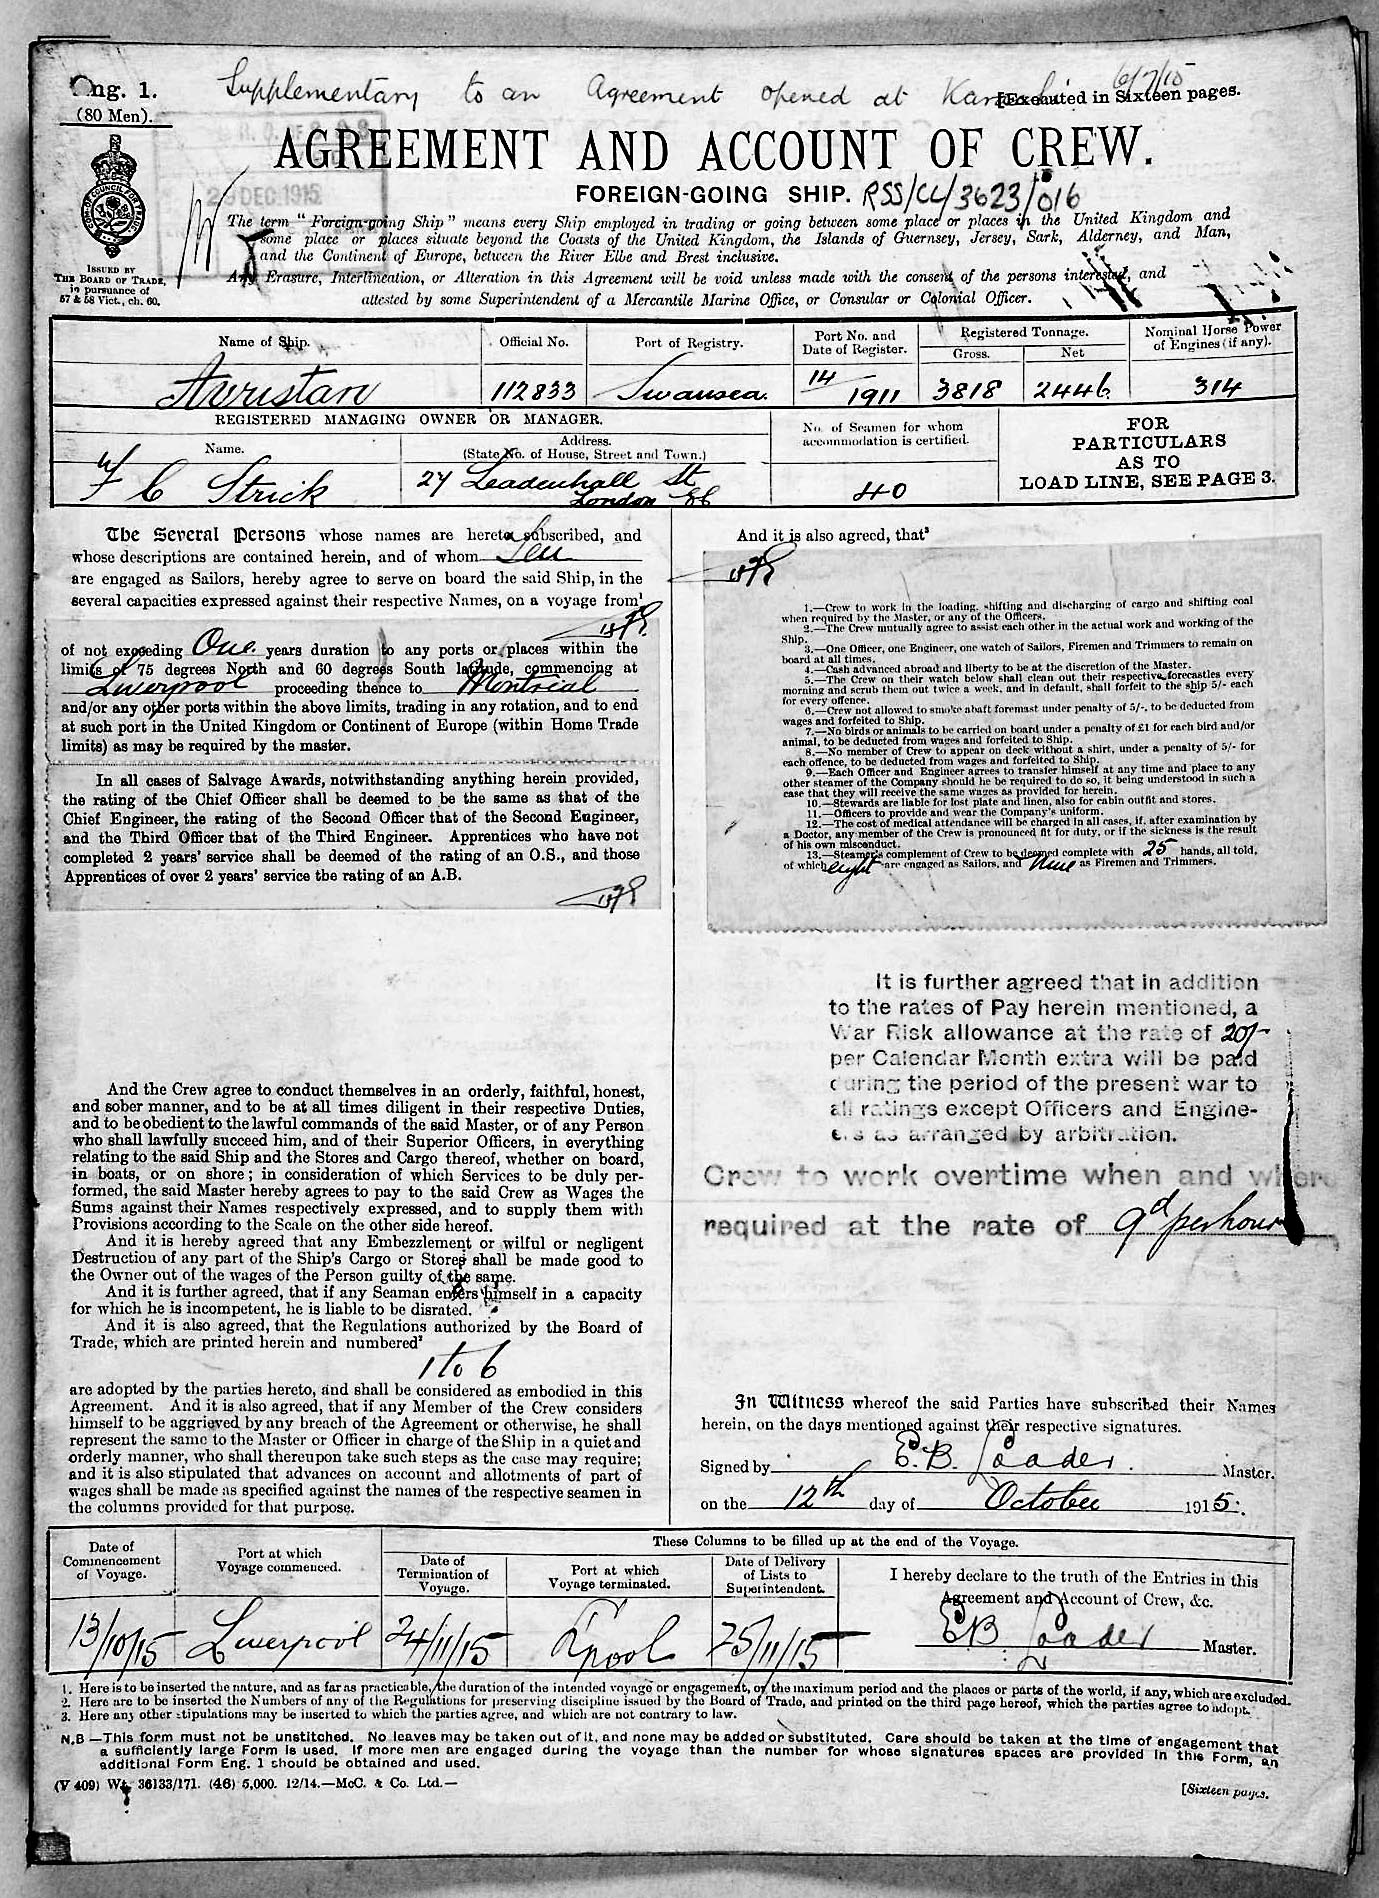 Eng. 1.
(80 Men).
Supplementary to an Agreement opened at Karachi 6/7/15
[Executed in Sixteen pages.
AGREEMENT AND ACCOUNT OF CREW.
29 DEC 1915
FOREIGN-GOING SHIP. RSS/CL/3623/016
The term "Foreign-going Ship" means every Ship employed in trading or going between some place or places in the United Kingdom and
some place or places situate beyond the Coasts of the United Kingdom, the Islands of Guernsey, Jersey, Sark, Alderney, and Man,
and the Continent of Europe, between the River Elbe and Brest inclusive.
Any Erasure, Interlineation, or Alteration in this Agreement will be void unless made with the consent of the persons interested, and
attested by some Superintendent of a Mercantile Marine Office, or Consular or Colonial Officer.
ISSUED BY
THE BOARD OF TRADE,
in pursuance of
57 & 58 Vict., ch. 60.
Name of Ship. Official No. Port of Registry. Port No. and Date of Register. Registered Tonnage. Gross. Net Nominal Horse Power of Engines (if any).
Avristan 112833 Swansea. 14 1911 3818 2446 314
REGISTERED MANAGING OWNER OR MANAGER.
Name. Address. (State No. of House, Street and Town.)
No. of Seamen for whom accommodation is certified.
F C Strick 27 Leadenhall St London EC 40
FOR
PARTICULARS
AS TO
LOAD LINE, SEE PAGE 3.
The Several Persons whose names are hereto subscribed, and
whose descriptions are contained herein, and of whom Ten
are engaged as Sailors, hereby agree to serve on board the said Ship, in the
several capacities expressed against their respective Names, on a voyage from¹
of not exceeding One years duration to any ports or places within the
limits of 75 degrees North and 60 degrees South latitude, commencing at
Liverpool proceeding thence to Montreal
and/or any other ports within the above limits, trading in any rotation, and to end
at such port in the United Kingdom or Continent of Europe (within Home Trade
limits) as may be required by the master.
In all cases of Salvage Awards, notwithstanding anything herein provided,
the rating of the Chief Officer shall be deemed to be the same as that of the
Chief Engineer, the rating of the Second Officer that of the Second Engineer,
and the Third Officer that of the Third Engineer. Apprentices who have not
completed 2 years' service shall be deemed of the rating of an O.S., and those
Apprentices of over 2 years' service the rating of an A.B.
And the Crew agree to conduct themselves in an orderly, faithful, honest,
and sober manner, and to be at all times diligent in their respective Duties,
and to be obedient to the lawful commands of the said Master, or of any Person
who shall lawfully succeed him, and of their Superior Officers, in everything
relating to the said Ship and the Stores and Cargo thereof, whether on board,
in boats, or on shore; in consideration of which Services to be duly per-
formed, the said Master hereby agrees to pay to the said Crew as Wages the
Sums against their Names respectively expressed, and to supply them with
Provisions according to the Scale on the other side hereof.
And it is hereby agreed that any Embezzlement or wilful or negligent
Destruction of any part of the Ship's Cargo or Stores shall be made good to
the Owner out of the wages of the Person guilty of the same.
And it is further agreed, that if any Seaman enters himself in a capacity
for which he is incompetent, he is liable to be disrated.
And it is also agreed, that the Regulations authorized by the Board of
Trade, which are printed herein and numbered²
1 to 6
are adopted by the parties hereto, and shall be considered as embodied in this
Agreement. And it is also agreed, that if any Member of the Crew considers
himself to be aggrieved by any breach of the Agreement or otherwise, he shall
represent the same to the Master or Officer in charge of the Ship in a quiet and
orderly manner, who shall thereupon take such steps as the case may require;
and it is also stipulated that advances on account and allotments of part of
wages shall be made as specified against the names of the respective seamen in
the columns provided for that purpose.
And it is also agreed, that³
1.—Crew to work in the loading, shifting and discharging of cargo and shifting coal
when required by the Master, or any of the Officers.
2.—The Crew mutually agree to assist each other in the actual work and working of the
Ship.
3.—One Officer, one Engineer, one watch of Sailors, Firemen and Trimmers to remain on
board at all times.
4.—Cash advanced abroad and liberty to be at the discretion of the Master.
5.—The Crew on their watch below shall clean out their respective forecastles every
morning and scrub them out twice a week, and in default, shall forfeit to the ship 5/- each
for every offence.
6.—Crew not allowed to smoke abaft foremast under penalty of 5/-, to be deducted from
wages and forfeited to Ship.
7.—No birds or animals to be carried on board under a penalty of £1 for each bird and/or
animal, to be deducted from wages and forfeited to Ship.
8.—No member of Crew to appear on deck without a shirt, under a penalty of 5/- for
each offence, to be deducted from wages and forfeited to Ship.
9.—Each Officer and Engineer agrees to transfer himself at any time and place to any
other steamer of the Company should he be required to do so, it being understood in such a
case that they will receive the same wages as provided for herein.
10.—Stewards are liable for lost plate and linen, also for cabin outfit and stores.
11.—Officers to provide and wear the Company's uniform.
12.—The cost of medical attendance will be charged in all cases, if, after examination by
a Doctor, any member of the Crew is pronounced fit for duty, or if the sickness is the result
of his own misconduct.
13.—Steamer's complement of Crew to be deemed complete with 25 hands, all told,
of which eight are engaged as Sailors, and Nine as Firemen and Trimmers.
It is further agreed that in addition
to the rates of Pay herein mentioned, a
War Risk allowance at the rate of 20/-
per Calendar Month extra will be paid
during the period of the present war to
all ratings except Officers and Engine-
ers as arranged by arbitration.
Crew to work overtime when and where
required at the rate of 9d per hour
In Witness whereof the said Parties have subscribed their Names
herein, on the days mentioned against their respective signatures.
Signed by E.B. Loader. Master.
on the 12th day of October 1915.
Date of Commencement of Voyage. Port at which Voyage commenced. These Columns to be filled up at the end of the Voyage.
Date of Termination of Voyage. Port at which Voyage terminated. Date of Delivery of Lists to Superintendent.
I hereby declare to the truth of the Entries in this
Agreement and Account of Crew, &c.
13/10/15 Liverpool 24/11/15 L'pool 25/11/15 E.B. Loader Master.
1. Here is to be inserted the nature, and as far as practicable, the duration of the intended voyage or engagement, or the maximum period and the places or parts of the world, if any, which are excluded.
2. Here are to be inserted the Numbers of any of the Regulations for preserving discipline issued by the Board of Trade, and printed on the third page hereof, which the parties agree to adopt.
3. Here any other stipulations may be inserted to which the parties agree, and which are not contrary to law.
N.B—This form must not be unstitched. No leaves may be taken out of it, and none may be added or substituted. Care should be taken at the time of engagement that
a sufficiently large Form is used. If more men are engaged during the voyage than the number for whose signatures spaces are provided in this Form, an
additional Form Eng. 1 should be obtained and used.
(V 409) Wt. 36133/171. (46) 5,000. 12/14.—McC. & Co. Ltd.—
[Sixteen pages.